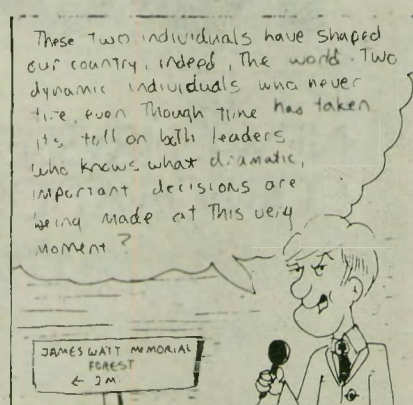 These two individuals have shaped
our country, indeed, the world. Two
dynamic individuals who never
tire, even though time has taken
its toll on both leaders.
who knows what dramatic,
important decisions are
being made at this very
moment?
JAMES WATT MEMORIAL
FOREST
← 2M.